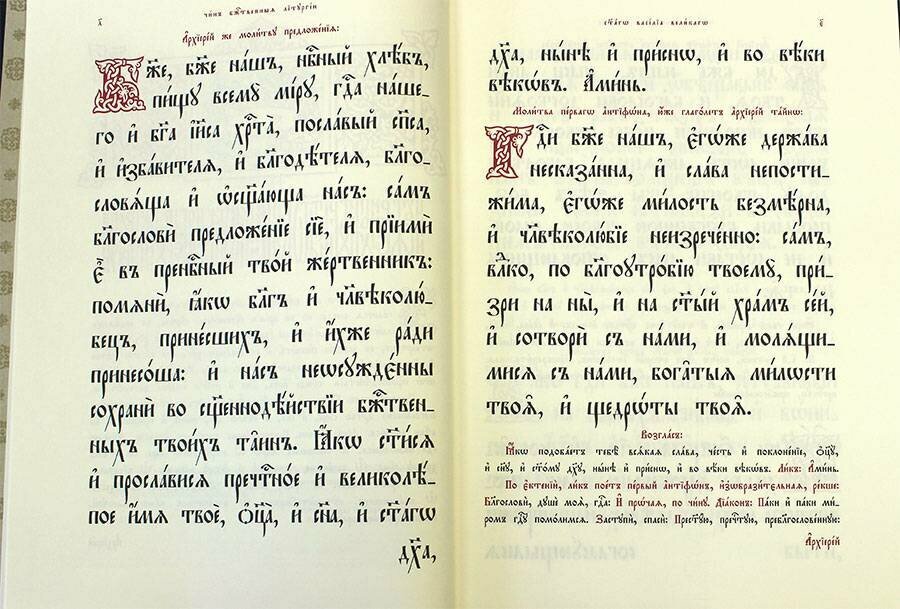 чи́нъ бж҃твенныѧ літꙋргі́и
А҆рхїере́й же моли́твꙋ предложе́нїѧ:
Бж҃е, бж҃е на́шъ, нбⷭ҇ный хлѣ́бъ,
пи́щꙋ всемꙋ̀ мі́рꙋ, гдⷭ҇а на́ше‑
го и҆ бг҃а і҆и҃са хрⷭ҇та̀, посла́вый сп҃са,
и҆ и҆зба́вителѧ, и҆ бл҃годѣ́телѧ, бл҃го‑
словѧ́ща и҆ ѡ҆сщ҃а́юща на́съ: са́мъ
бл҃гословѝ предложе́нїе сїѐ, и҆ прїимѝ
є҆̀ в пренбⷭ҇ный тво́й же́ртвенникъ:
помѧнѝ, ꙗ҆́кѡ бл҃гъ и҆ чл҃вѣколю́‑
бецъ, прине́сшихъ, и҆ и҆̀хже ра́ди
принесо́ша: и҆ на́съ неѡсꙋжде́нны
сохранѝ во сщ҃еннодѣ́йствїи бж҃твен‑
ныхъ твои́хъ та̑инъ. Ꙗ҆́кѡ ст҃и́сѧ
и҆ просла́висѧ пречⷭ҇тно́е и҆ великолѣ́‑
пое и҆́мѧ твоѐ, ѻ҆ц҃а̀, и҆ сн҃а, и҆ ст҃а́гѡ
дх҃а,
ст҃а́гѡ васі́лїа вели́кагѡ
дх҃а, ны́нѣ и҆ при́снѡ, и҆ во вѣ́ки
вѣкѡ́въ. А҆ми́нь.
Моли́тва пе́рвагѡ а҆нтїфѡ́на, ю҆́же глаго́летъ а҆рхїере́й та́йнѡ:
Гдⷭ҇и бж҃е на́шъ, є҆гѡ́же держа́ва
несказа́нна, и҆ сла́ва непости‑
жи́ма, є҆гѡ́же ми́лость безмѣ́рна,
и҆ чл҃вѣколю́бїе неизрече́нно: са́мъ,
влⷣко, по бл҃гоꙋтро́бїю твоемꙋ̀, при́‑
зри на ны̀, и҆ на ст҃ы́й хра́мъ се́й,
и҆ сотворѝ съ на́ми, и҆ молѧ́щи‑
мисѧ съ на́ми, бога̑тыѧ ми́лѡсти
твоѧ̑, и҆ щедрѡ́ты твоѧ̑.
Во́згласъ:
Ꙗ҆́кѡ подоба́етъ тебѣ̀ всѧ́каѧ сла́ва, че́сть и҆ поклоне́нїе, ѻ҆ц҃ꙋ̀,
и҆ сн҃ꙋ, и҆ ст҃о́мꙋ дх҃ꙋ, ны́нѣ и҆ при́снѡ, и҆ во вѣ́ки вѣкѡ́въ. Ли́къ: А҆ми́нь.
По є҆ктенїѝ, ли́къ пое́тъ пе́рвый а҆нтїфѡ́нъ, и҆зѡбрази́тельнаѧ, ре́кше:
Бл҃гословѝ, дꙋшѐ моѧ̀, гдⷭ҇а: И҆ прѡ́чаѧ, по чи́нꙋ. Дїа́конъ: Па́ки и҆ па́ки ми́‑
ромъ гдⷭ҇ꙋ помо́лимсѧ. Застꙋпѝ, спасѝ: Прест҃ꙋ́ю, пречⷭ҇тꙋю, пребл҃гослове́ннꙋю:
А҆рхїере́й